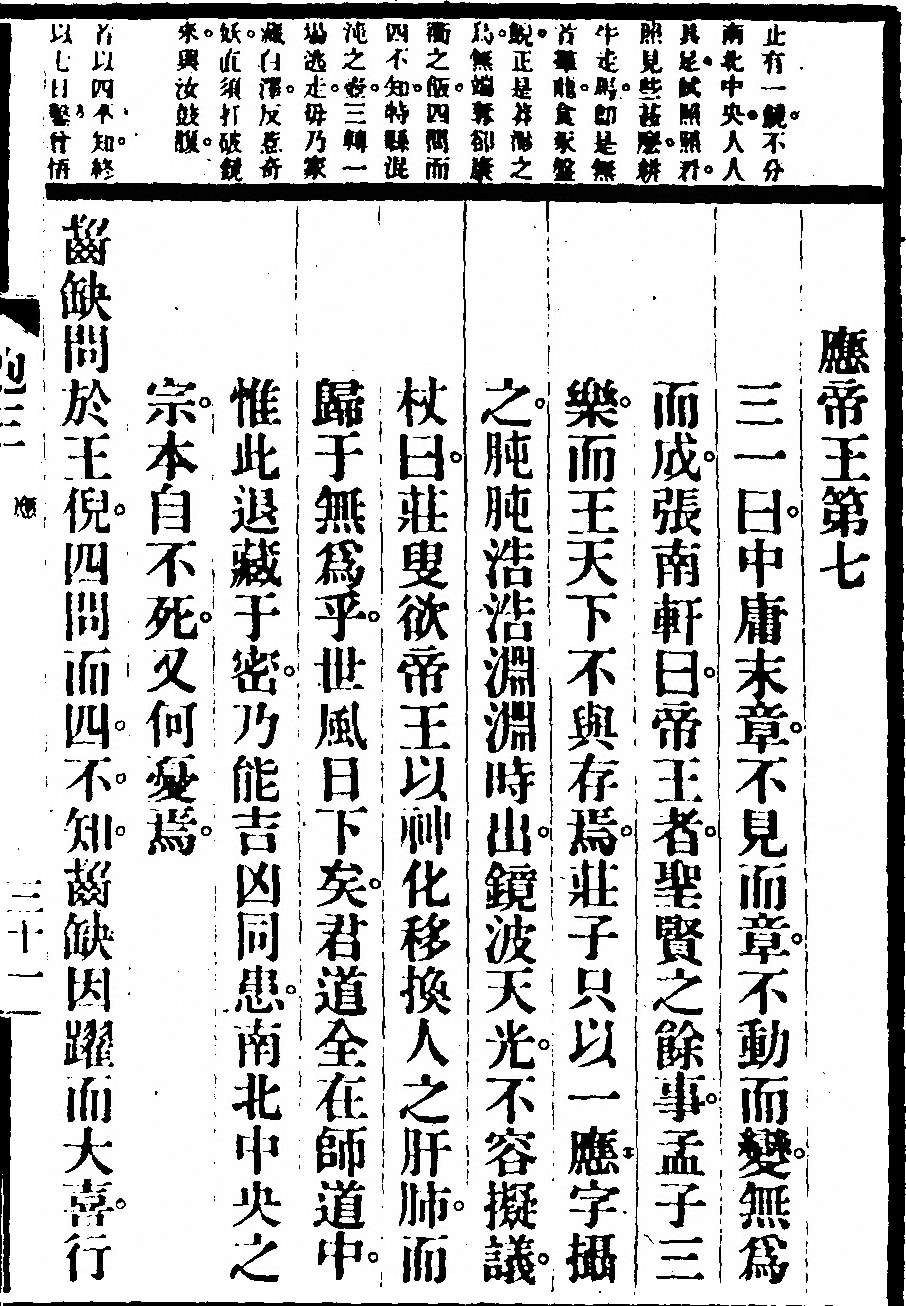 止有一鏡。不分
南北中央。人人
具足試照照看。
照見些甚麼。耕
牛走馬即是無
首
鯢。正是莽渺之
鳥。無端奪卻康
衢之飯。四問而
四不知。特縣混
沌之壺。三轉一
場逃走。毋乃家
藏白澤。反惹奇
妖。直須打破鏡
來。與汝鼓腹。
首以四不知。終
以七日鑿
應帝王第七
三一曰。中庸末章。不見而章。不動而變。無為
而成。張南軒曰。帝王者。聖賢之餘事。孟子三
樂。而王天下不與存焉。莊子只以一應字攝
之。肫肫浩浩淵淵時出。鏡波天光。不容擬議。
杖曰。莊叟欲帝王以神化移換人之肝肺。而
歸于無為乎。世風日下矣。君道全在師道中。
惟此退藏于密。乃能吉凶同患。南北中央之
宗。本自不死。又何憂焉。
齧缺問於王倪。四問而四。不。知。齧缺因躍而大喜。行
應
三十一